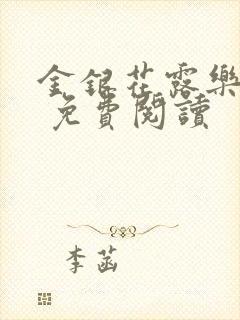 金銀花露樂
免費閱讀
李菡